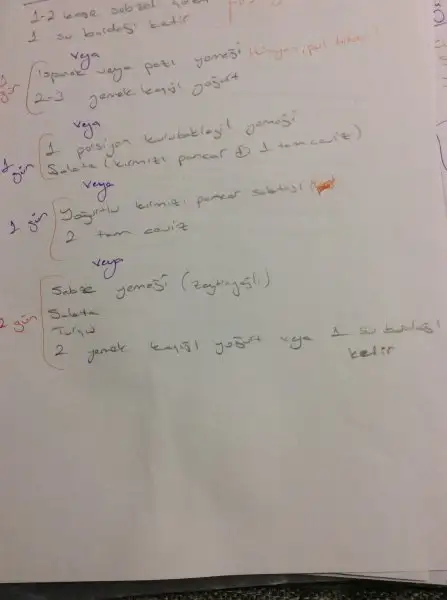 1-2 kase sebze
1 su bardağı kefir
veya
Ispanak veya pazı yemeği
2-3 yemek kaşığı yoğurt
gün
veya
1 porsiyon kurubaklagil yemeği
Salata (kırmızı pancar 1 tam ceviz)
1 gün
veya
Yoğurtlu kırmızı pancar salatası
2 tam ceviz
1 gün
veya
Sebze yemeği (zeytinyağlı)
Salata
Turşu
2 yemek kaşığı yoğurt veya 1 su bardağı
kefir
2 gün